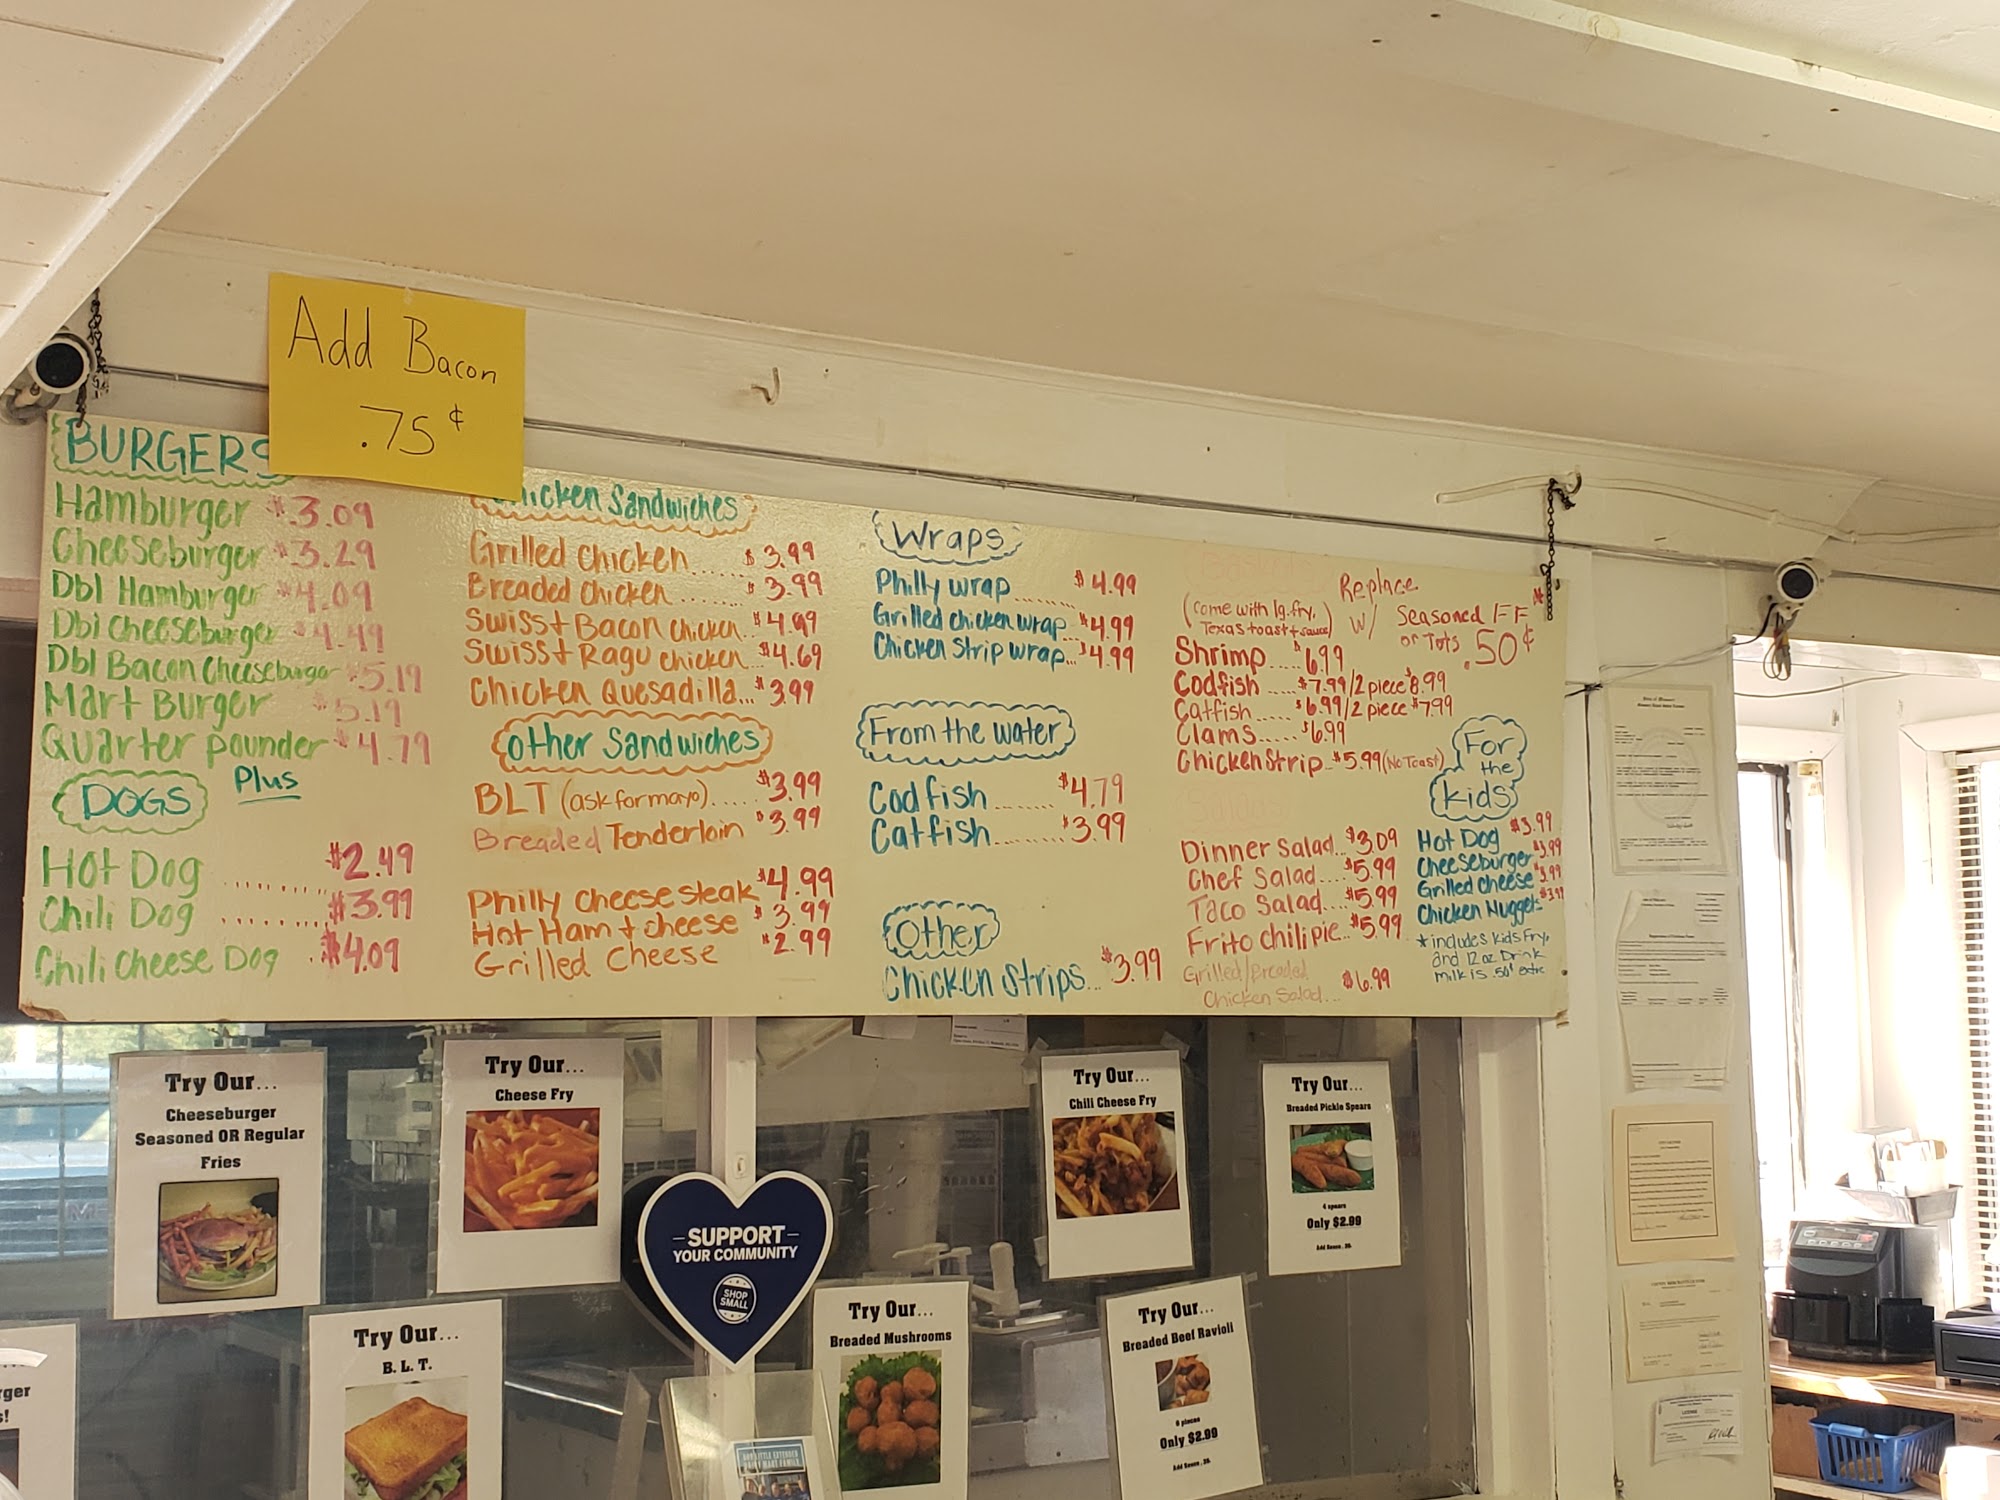 Add Bacon
.75¢
BURGERS
Hamburger $3.09
Cheeseburger $3.29
Dbl Hamburger $4.09
Dbl Cheeseburger $4.49
Dbl Bacon Cheeseburger $5.19
Mart Burger $5.19
Quarter pounder $4.79
Plus
DOGS
Hot Dog ......... $2.49
Chili Dog ........ $3.99
Chili Cheese Dog . $4.09
Chicken Sandwiches
Grilled Chicken ...... $3.99
Breaded Chicken ....... $3.99
Swiss + Bacon Chicken.. $4.99
Swiss + Ragu chicken... $4.69
Chicken Quesadilla... $3.99
Other Sandwiches
BLT (ask for mayo)...... $3.99
Breaded Tenderloin $3.99
Philly Cheese steak $4.99
Hot Ham + cheese $3.99
Grilled Cheese $2.99
Wraps
Philly wrap ......... $4.99
Grilled chicken wrap.. $4.99
Chicken Strip wrap... $4.99
From the water
Codfish ........ $4.79
Catfish .......... $3.99
Other
Chicken strips... $3.99
Baskets
(come with lg. fry,
Texas toast + sauce)
Replace
w/ Seasoned FF*
or Tots .50¢
Shrimp.... $6.99
Codfish ..... $7.99/2 piece $8.99
Catfish ..... $6.99/2 piece $7.99
Clams..... $6.99
Chicken Strip.. $5.99 (No Toast)
Dinner Salad.. $3.09
Chef Salad.... $5.99
Taco Salad... $5.99
Frito chili pie.. $5.99
Grilled/Breaded
Chicken Salad... $6.99
For
the
Kids
Hot Dog $3.99
Cheeseburger $3.99
Grilled cheese $3.99
Chicken Nuggets $3.99
*includes kids fry,
and 12 oz Drink
milk is .50¢ extra
Try Our...
Cheeseburger
Seasoned OR Regular
Fries
Try Our...
Cheese Fry
Try Our...
Chili Cheese Fry
Try Our...
Breaded Pickle Spears
4 spears
Only $2.99
Add Sauce .35
SUPPORT
YOUR COMMUNITY
SHOP
SMALL
Try Our...
B. L. T.
Try Our...
Breaded Mushrooms
Try Our...
Breaded Beef Ravioli
6 pieces
Only $2.99